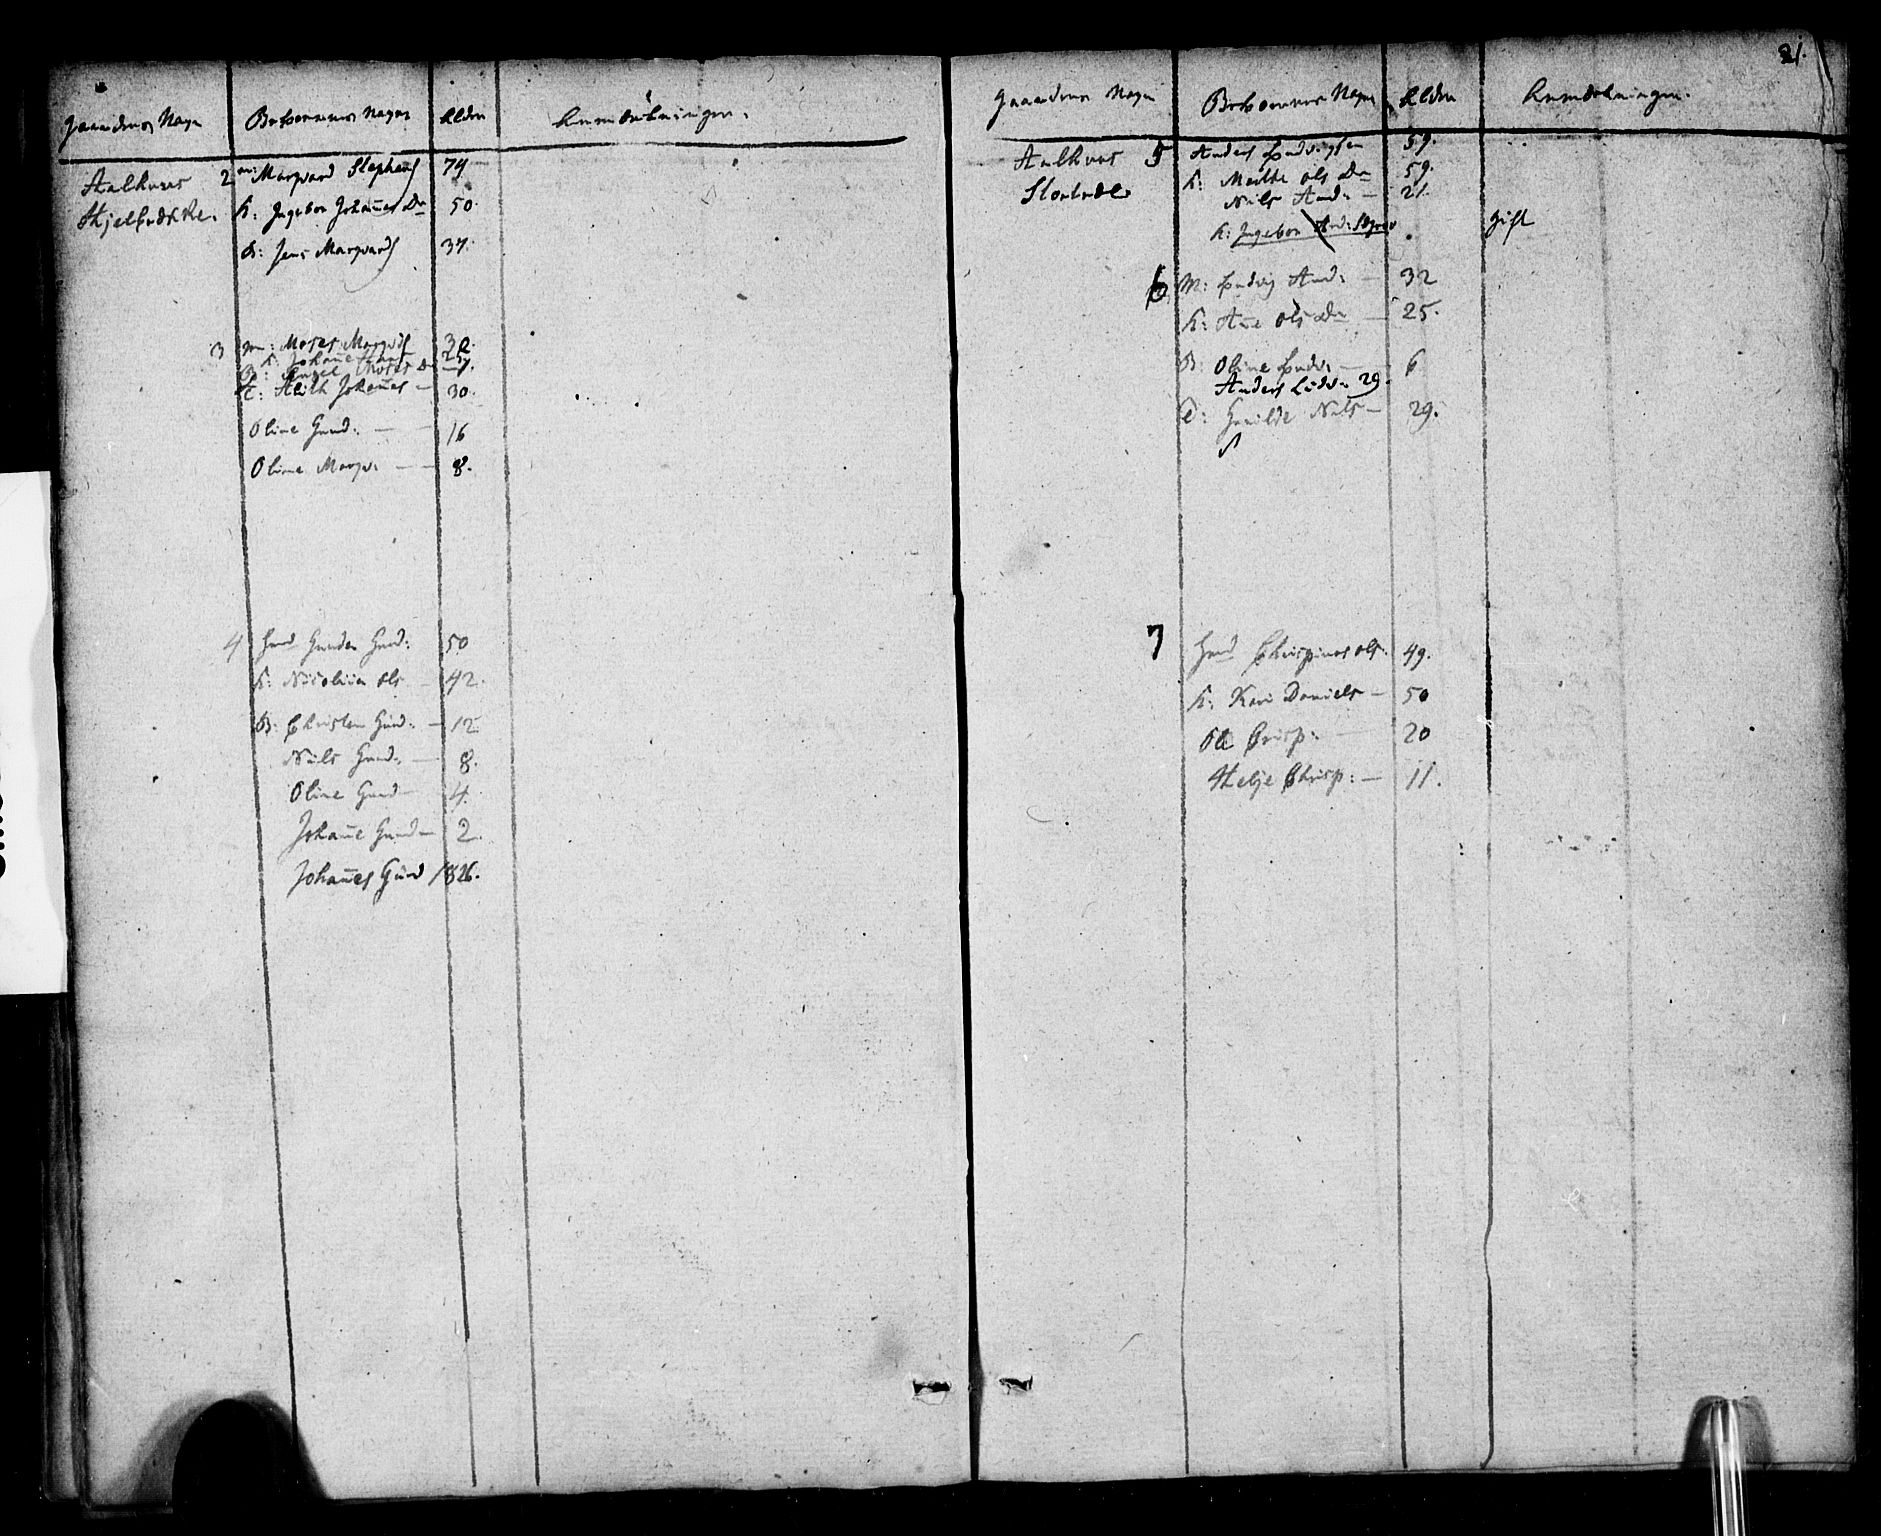 Gaardenes Navn Beboernes Navne Alder Anmærkninger.
Aalhuus 2 m: Marqvard Stephens 74
Skjelbredske.
K: Ingebor Johannes Dr 50.
B: Jens Marqvards 37.
3 m: Moses Marqvds 32.
K: Johanne
B: Moses Dr
T: Johannes – 30.
Oline Gund: – 16
Oline Marqv: – 8.
4 Hmd Gunder Gund: 50
K: Nicolina Ols – 42.
B: Christen Gund: – 12
Nils Gund: – 8.
Oline Gund – 4.
Johanne Gund – 2.
Johannes Gund 1826.
21.
Gaardenes Navn Beboernes Navne Alder Anmærkninger.
Aalhuus 5 Anders Ludvigsen 59.
K: Marthe Ols Dr 59.
Nils And: – 21.
K: Ingebor And: gift
6 M: Ludvig And: – 32
K: Ane Ols Dr – 25.
B: Oline Ludv: – 6
Anders Ludv: 29.
Gunilde Nils – 29.
7 Hmd Chrispinus Ols. 49.
K: Kari Daniels – 50
Ole Crisp: – 20
Helje Chrisp: – 11.